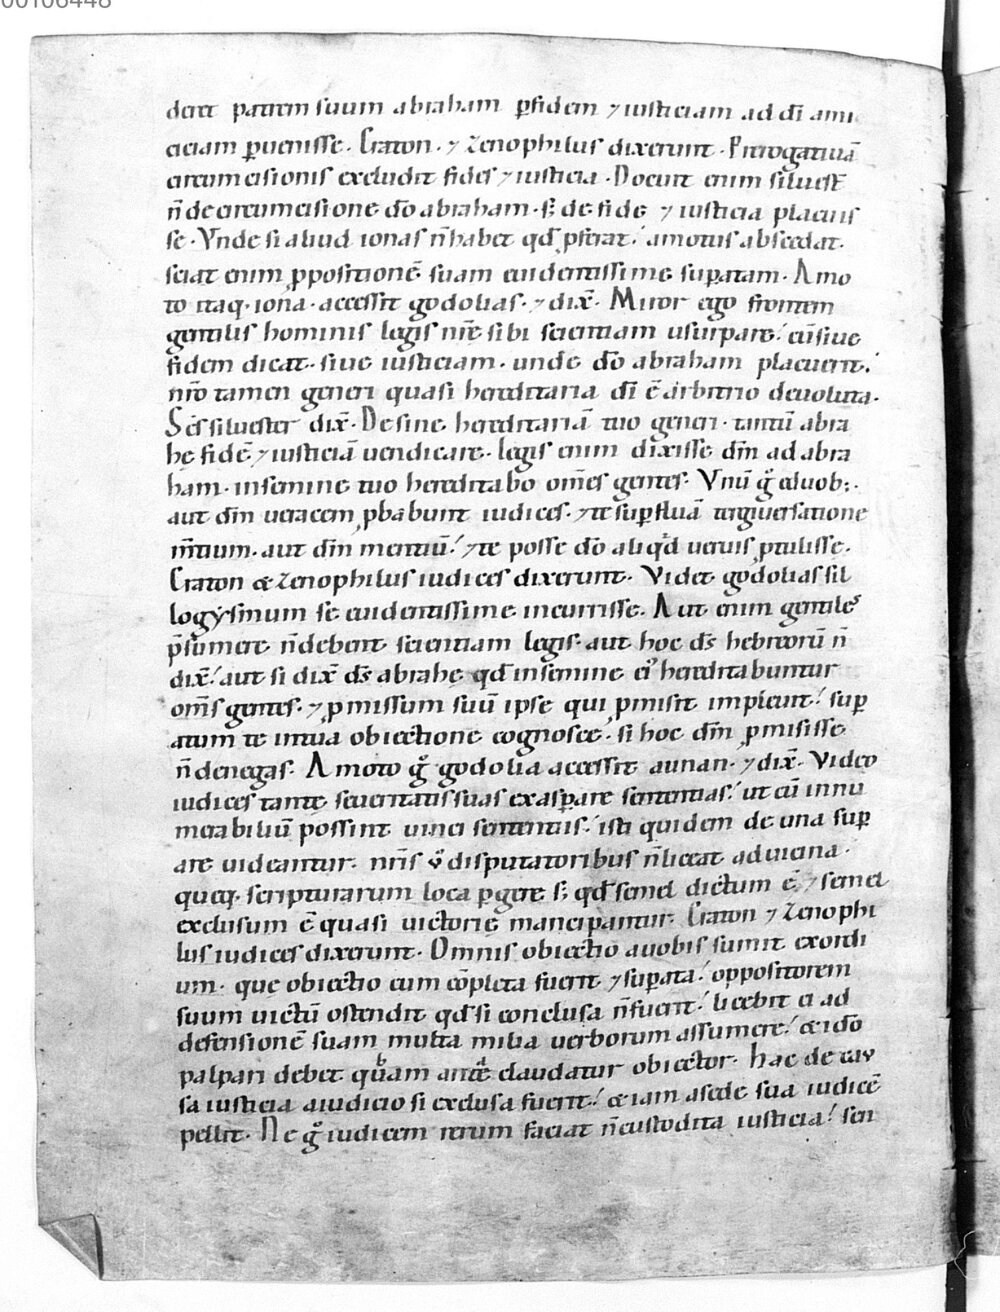 00106448
deret patrem suum abraham ꝑfidem ⁊ iusticiam ad dī ami
ciciam ꝑuenisse. Craton. ⁊ Zenophilus dixerunt. Prerogatiuā
circumcisionis excludit fides ⁊ iusticia. Docuit enim siluesṫ
n̄ de circumcisione do̅ abraham. sꝫ de fide ⁊ iusticia placuis
se. Vnde si aliud ionas n̄ habet qd̅ ꝓferat. amotus abscedat.
sciat enim ꝓpositionē suam euidentissime suꝑatam. Amo
to itaq. iona. accessit godolias. ⁊ dix̅. Miror ego frontem
gentilis hominis legis nr̅e sibi scientiam usurpare. cū siue
fidem dicat. siue iusticiam. unde do̅ abraham placuerit.
nr̅o tamen generi quasi hereditaria dī ē arbitrio deuoluta.
Sc̅s siluester dix̅. Desine hereditariā tuo generi. tantū abra
hę fidē ⁊ iusticiā uendicare. legis enim dixisse dm̅ ad abra
ham. in semine tuo hereditabo om̅es gentes. Vnū gͦ e duob;.
aut dm̅ ueracem ꝓbabunt iudices. ⁊ te suꝑfluā tergiuersatione
m̅tium. aut dm̅ mentiū. ⁊ te posse do̅ aliqͥd ueruis ꝓtulisse.
Craton & Zenophilus iudices dixerunt. Videt godolias sil
logysmum se euidentissime incurrisse. Aut enim gentiles
p̅sumere n̄ debent scientiam legis. aut hoc ds̅ hebreorū n̄
dix̅. aut si dix̅ ds̅ abrahę qd̅ in semine eiꝰ hereditabuntur
om̅s gentes. ⁊ ꝓmissum suū ipse qui ꝓmisit impleuit. suꝑ
atum te in tua obiectione cognosce. si hoc dm̅ ꝓmisisse
n̄ denegas. Amoto gͦ godolia accessit aunan. ⁊ dix̅. Video
iudices tantę seueritatis suas exasꝑare sententias. ut cū innu
merabiliū possint uinci sententiis. isti quidem de una suꝑ
are uideantur. nr̅is v̊ disputatoribus n̄ liceat ad uicina
queq. scripturarum loca ꝑgere sꝫ qd̅ semel dictum ē. ⁊ semel
exclusum ē quasi uictorię mancipantur. Craton ⁊ Zenophi
lus iudices dixerunt. Omnis obiectio a uobis sumit exordi
um. que obiectio cum cōpleta fuerit ⁊ suꝑata. oppositorem
suum uictū ostendit qd̅ si conclusa n̄ fuerit. licebit ei ad
defensionē suam multa milia uerborum assumere. & ido̅
palpari debet quam antͣ claudatur obiector. hac de cau
sa iusticia a iudicio si exclusa fuerit. & iam a sede sua iudicē
pellit. Ne gͦ iudicem rerum faciat n̄ custodita iusticia. sen